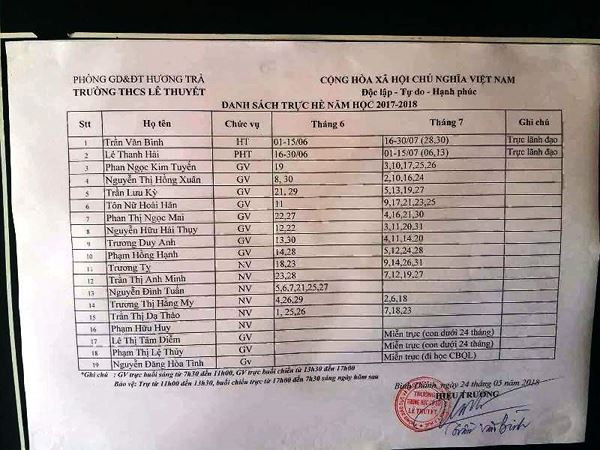 PHÒNG GD&ĐT HƯƠNG TRÀ
CỘNG HÒA XÃ HỘI CHỦ NGHĨA VIỆT NAM
TRƯỜNG THCS LÊ THUYẾT
Độc lập - Tự do - Hạnh phúc
DANH SÁCH TRỰC HÈ NĂM HỌC 2017-2018
Stt Họ tên Chức vụ Tháng 6 Tháng 7 Ghi chú
1 Trần Văn Bình HT 01-15/06 16-30/07 (28,30) Trực lãnh đạo
2 Lê Thanh Hải PHT 16-30/06 01-15/07 (06,13) Trực lãnh đạo
3 Phan Ngọc Kim Tuyến GV 19 3,10,17,25,26
4 Nguyễn Thị Hồng Xuân GV 8, 30 2,10,16,24
5 Trần Lưu Kỳ GV 21, 29 5,13,19,27
6 Tôn Nữ Hoài Hân GV 11 9,17,21,23,25
7 Phan Thị Ngọc Mai GV 22,27 4,16,21,30
8 Nguyễn Hữu Hải Thụy GV 12,22 3,11,20,31
9 Trương Duy Anh GV 13,30 4,11,14,20
10 Phạm Hồng Hạnh GV 14,28 5,12,24,28
11 Trương Tỵ NV 18,23 9,14,26,31
12 Trần Thị Anh Minh NV 23,28 7,12,19,27
13 Nguyễn Đình Tuấn NV 5,6,7,21,25,27
14 Trương Thị Hằng My NV 4,26,29 2,6,18
15 Trần Thị Dạ Thảo NV 1, 25,26 7,18,23
16 Phạm Hữu Huy NV
17 Lê Thị Tâm Diễm GV Miễn trực (con dưới 24 tháng)
18 Phạm Thị Lệ Thủy GV Miễn trực (con dưới 24 tháng)
19 Nguyễn Đăng Hòa Tính Gv Miễn trực (đi học CBQL)
*Ghi chú : GV trực buổi sáng từ 7h30 đến 11h00, GV trực buổi chiều từ 13h30 đến 17h00
Bảo vệ: Trự từ 11h00 đến 13h30, buổi chiều trực từ 17h00 đến 7h30 sáng ngày hôm sau
Bình Thành, ngày 24 tháng 05 năm 2018
HIỆU TRƯỞNG
TRƯỜNG
TRUNG HỌC CƠ SỞ
LÊ THUYẾT
Trần Văn Bình